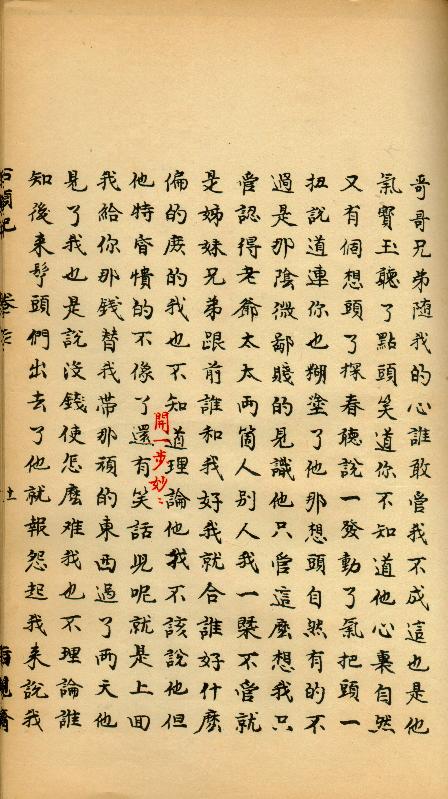 哥哥兄弟隨我的心誰敢管我不成這也是他
氣寳玉聽了點頭笑道你不知道他心裏自然
又有個想頭了探春聽說一發動了氣把頭一
扭說道連你也糊塗了他那想頭自然有的不
過是那隂微鄙賤的見識他只管這麽想我只
管認得老爺太太兩箇人别人我一槩不管就
是姊妹兄弟跟前誰和我好我就合誰好什麽
偏的庶的我也不知道理論他我不該說他但
他特昏憒的不像了還有笑話兒呢就是上回
開一步妙〻
我給你那錢替我帶那頑的東西過了兩天他
見了我也是說沒錢使怎麽難我也不理論誰
知後来丫頭們出去了他就報怨起我来說我